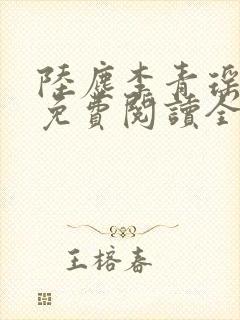 陸塵李青瑤
免費閱讀全
王榕春